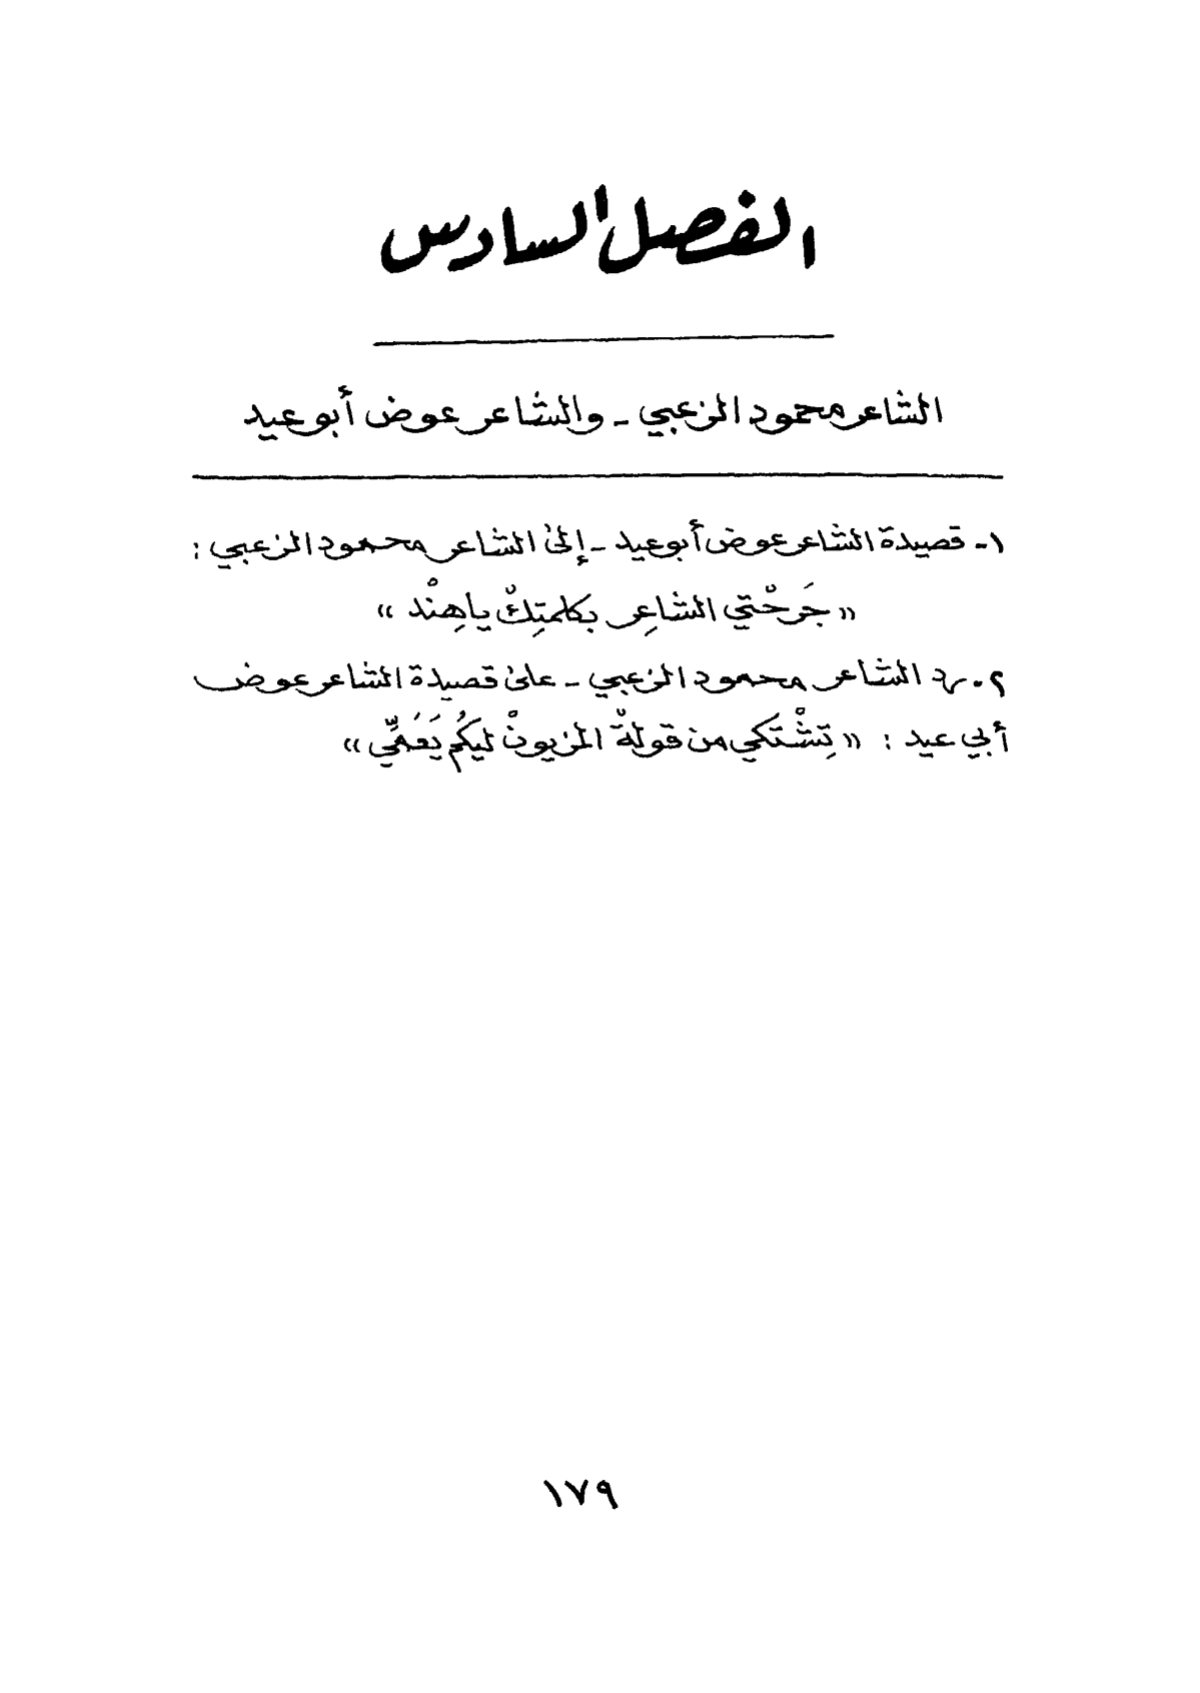 الفصل السادس
الشاعر محمود الزعبي - والشاعر عوض أبو عيد
١- قصيدة الشاعر عوض أبو عيد - إلى الشاعر محمود الزعبي :
« جَرحْتي الشاعِر بكلمتِكْ ياهِنْد »
٢- رد الشاعر محمود الزعبي - على قصيدة الشاعر عوض
أبي عيد : « تِشْتكي من قولةْ المزيونْ ليكُم يَعَمِّي »
١٧٩